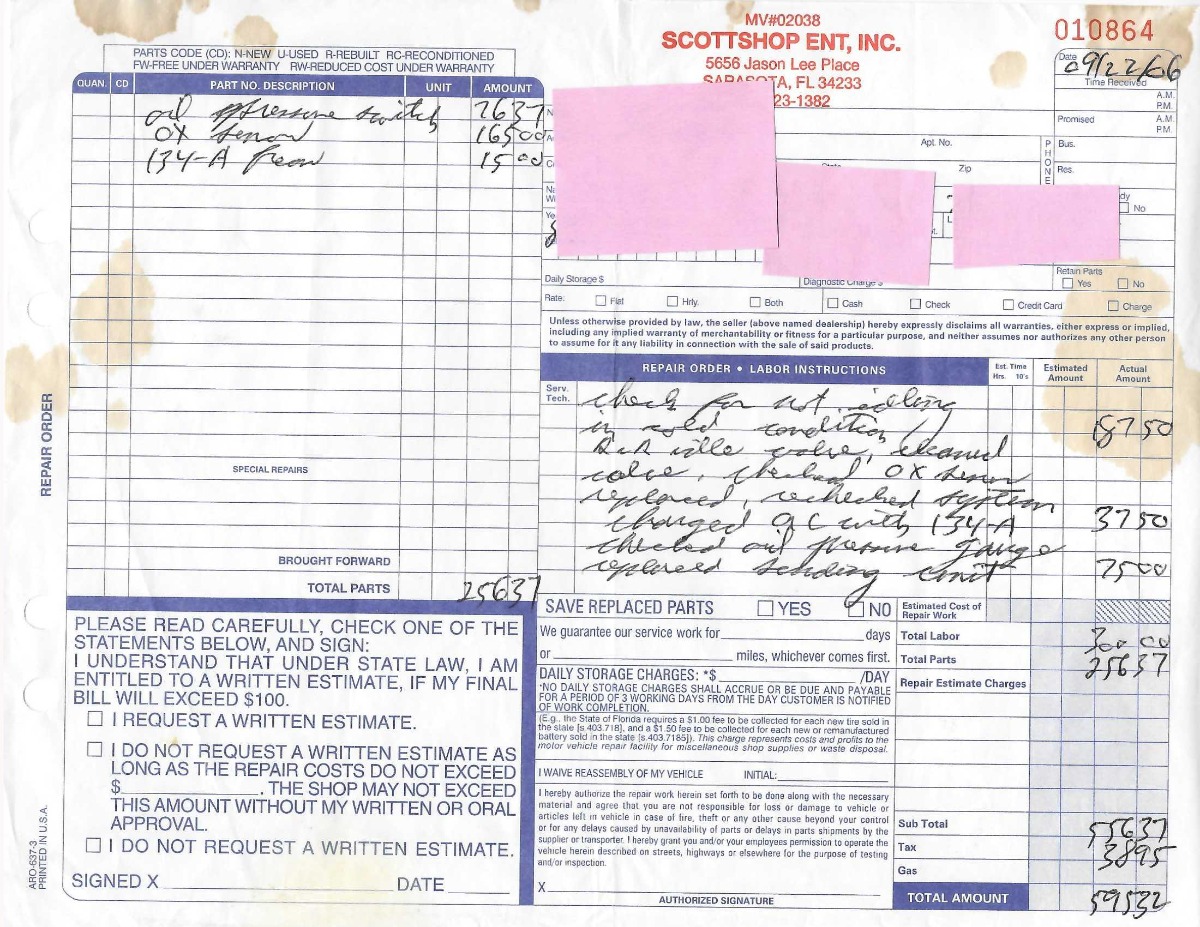 MV#02038
SCOTTSHOP ENT, INC.
5656 Jason Lee Place
SARASOTA, FL 34233
23-1382
010864
Date 09/22/06
Time Received
A.M.
P.M.
Promised
A.M.
P.M.
PARTS CODE (CD): N-NEW U-USED R-REBUILT RC-RECONDITIONED
FW-FREE UNDER WARRANTY RW-REDUCED COST UNDER WARRANTY
QUAN. CD PART NO. DESCRIPTION UNIT AMOUNT
oil pressure switch 7637
OX sensor 16500
134-A freon 1500
SPECIAL REPAIRS
BROUGHT FORWARD
TOTAL PARTS 25637
REPAIR ORDER
ARO-637-3
PRINTED IN U.S.A.
Apt. No.
PHONE
Bus.
Zip
Res.
No
Retain Parts
Yes No
Daily Storage $ Diagnostic Charge $
Rate: Flat Hrly. Both Cash Check Credit Card Charge
Unless otherwise provided by law, the seller (above named dealership) hereby expressly disclaims all warranties, either express or implied,
including any implied warranty of merchantability or fitness for a particular purpose, and neither assumes nor authorizes any other person
to assume for it any liability in connection with the sale of said products.
REPAIR ORDER • LABOR INSTRUCTIONS Est. Time Hrs. 10's Estimated Amount Actual Amount
Serv. Tech.
check for not idling
in cold condition 18750
R&R idle valve, cleaned
valve, checked OX sensor
replaced, rechecked system
charged AC with 134-A 3750
checked oil pressure gauge
replaced sending unit 7500
SAVE REPLACED PARTS YES NO
Estimated Cost of Repair Work
We guarantee our service work for days
or miles, whichever comes first.
Total Labor 300 00
Total Parts 25637
Repair Estimate Charges
DAILY STORAGE CHARGES: *$ /DAY
*NO DAILY STORAGE CHARGES SHALL ACCRUE OR BE DUE AND PAYABLE
FOR A PERIOD OF 3 WORKING DAYS FROM THE DAY CUSTOMER IS NOTIFIED
OF WORK COMPLETION.
(E.g., the State of Florida requires a $1.00 fee to be collected for each new tire sold in
the state [s.403.718], and a $1.50 fee to be collected for each new or remanufactured
battery sold in the state [s.403.7185]). This charge represents costs and profits to the
motor vehicle repair facility for miscellaneous shop supplies or waste disposal.
I WAIVE REASSEMBLY OF MY VEHICLE INITIAL:
I hereby authorize the repair work herein set forth to be done along with the necessary
material and agree that you are not responsible for loss or damage to vehicle or
articles left in vehicle in case of fire, theft or any other cause beyond your control
or for any delays caused by unavailability of parts or delays in parts shipments by the
supplier or transporter. I hereby grant you and/or your employees permission to operate the
vehicle herein described on streets, highways or elsewhere for the purpose of testing
and/or inspection.
X
AUTHORIZED SIGNATURE
Sub Total 55637
Tax 3895
Gas
TOTAL AMOUNT 59532
PLEASE READ CAREFULLY, CHECK ONE OF THE
STATEMENTS BELOW, AND SIGN:
I UNDERSTAND THAT UNDER STATE LAW, I AM
ENTITLED TO A WRITTEN ESTIMATE, IF MY FINAL
BILL WILL EXCEED $100.
I REQUEST A WRITTEN ESTIMATE.
I DO NOT REQUEST A WRITTEN ESTIMATE AS
LONG AS THE REPAIR COSTS DO NOT EXCEED
$ . THE SHOP MAY NOT EXCEED
THIS AMOUNT WITHOUT MY WRITTEN OR ORAL
APPROVAL.
I DO NOT REQUEST A WRITTEN ESTIMATE.
SIGNED X DATE